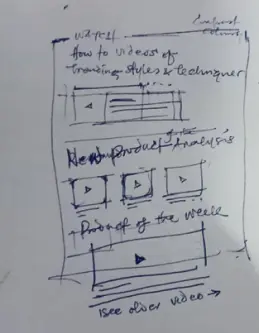 How to videos of
styles & techniques
New product Analysis
Product of the week
see older video →